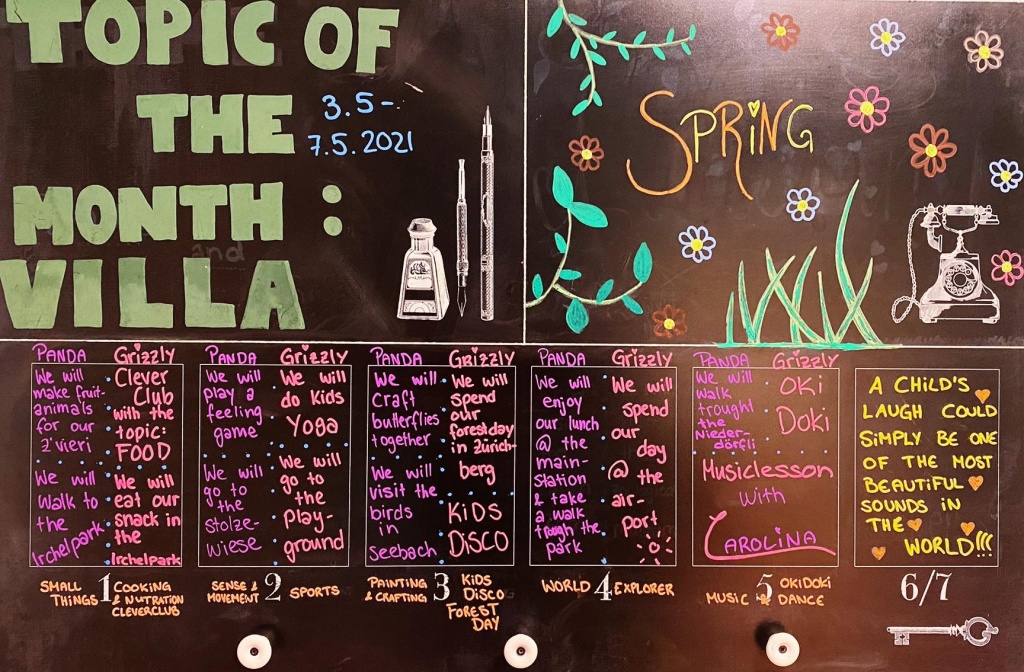 TOPIC OF
THE
MONTH :
VILLA
3.5-
7.5.2021
and
SPRiNG
PANDA
We will
make fruit-
animals
for our
z'vieri
We will
walk to
the
Irchelpark
Grizzly
Clever
Club
with the
topic:
FOOD
We will
eat our
snack in
the
Irchelpark
SMALL
THINGS
1
COOKING
& NUTRATION
CLEVERCLUB
PANDA
We will
play a
feeling
game
We will
go to
the
Stolze-
wiese
Grizzly
We will
do Kids
Yoga
We will
go to
the
play-
ground
SENSE &
MOVEMENT
2
SPORTS
PANDA
We will
craft
butterflies
together
We will
visit the
birds
in
Seebach
Grizzly
We will
spend
our
forestday
in Zürich-
berg
KiDS
DiSCO
PAINTING
& CRAFTING
3
KiDS
DiSCO
FOREST
DAY
PANDA
We will
enjoy
our lunch
@ the
main-
station
& take
a walk
trough the
park
Grizzly
We will
spend
our
day
@ the
air-
port
WORLD
4
EXPLORER
PANDA
We will
walk
trought
the
Nieder-
dörfli
Grizzly
OKi
Doki
Musiclesson
with
CAROLiNA
MUSIC &
5
OKIDOKI
DANCE
A CHiLD'S
LAUGH COULD
SiMPLY BE ONE
OF THE MOST
BEAUTiFUL
SOUNDS iN
THE
WORLD!!!
6/7